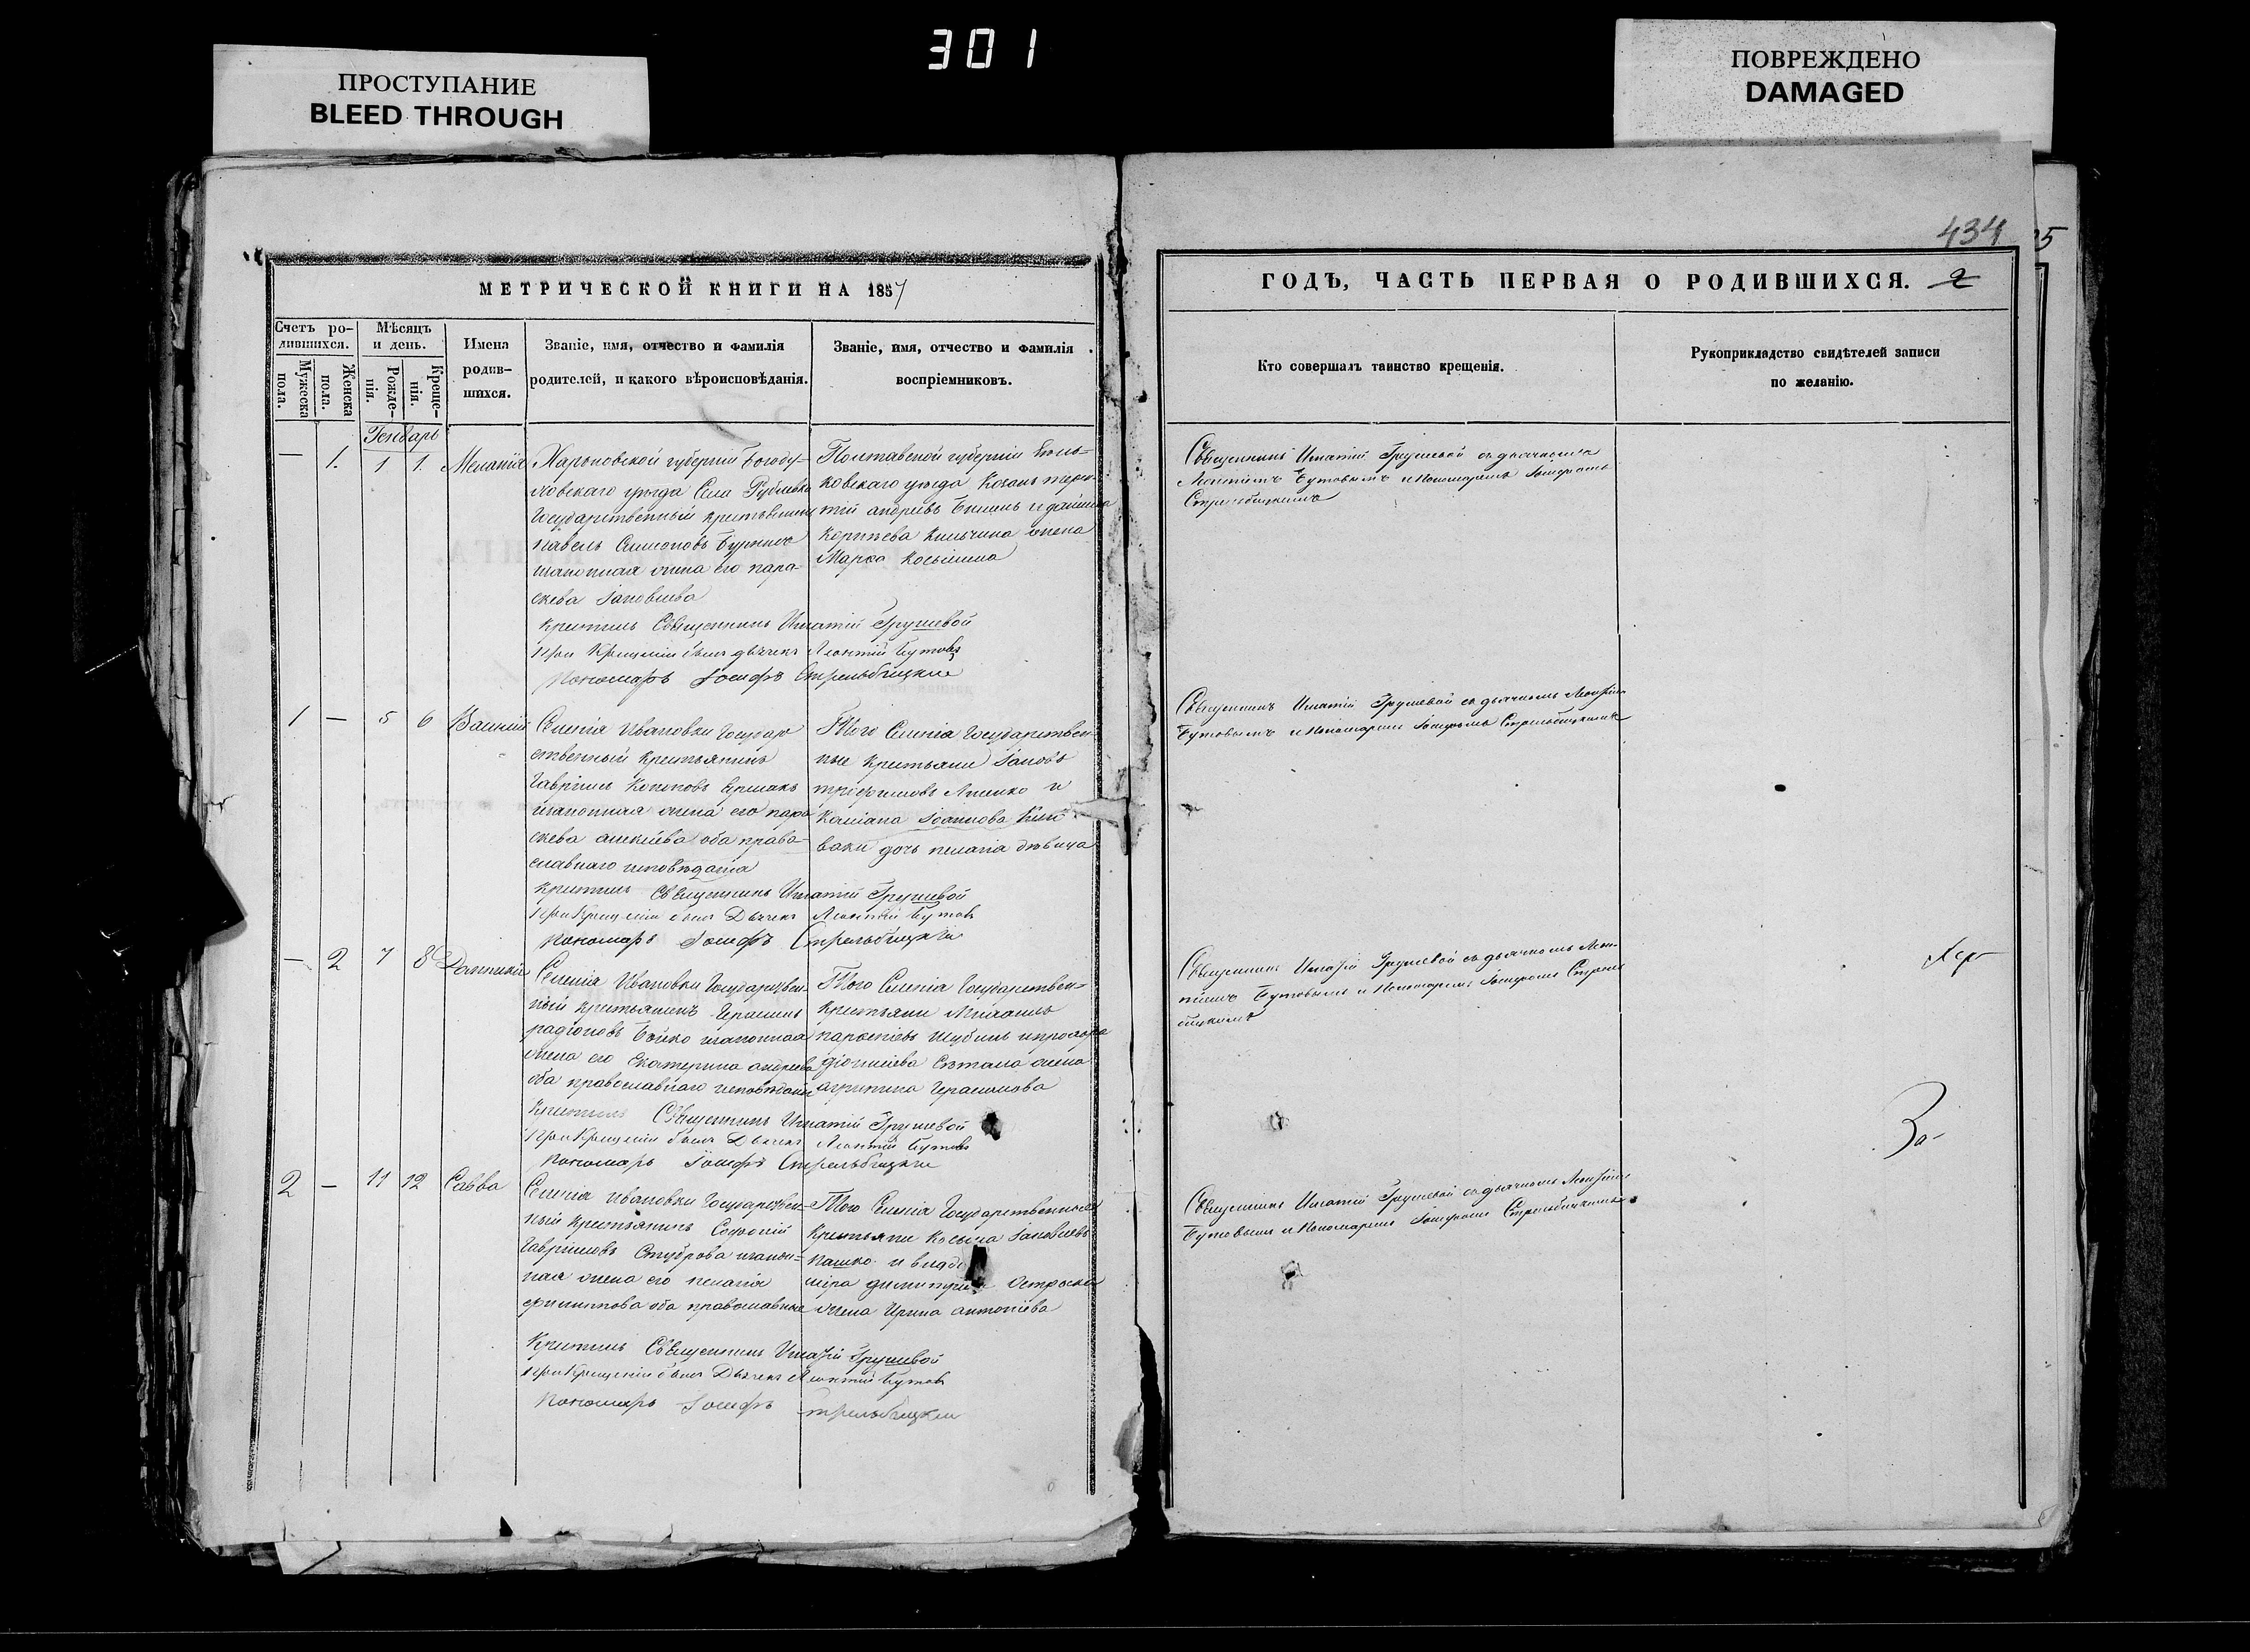 301
ПРОСТУПАНИЕ
BLEED THROUGH
ПОВРЕЖДЕНО
DAMAGED
434
5
МЕТРИЧЕСКОЙ КНИГИ НА 1857
Счетъ ро-
дившихся.
Мужеска
пола.
Женска
пола.
Мѣсяцъ
и день.
Рожде-
нія.
Креще-
нія.
Имена
родив-
шихся.
Званіе, имя, отчество и фамилія
родителей, и какого вѣроисповѣданія.
Званіе, имя, отчество и фамилія
воспріемниковъ.
Генварь
— 1. 1 1. Меланія
Харьковской губерніи Богоду-
ховскаго уѣзда Села Рублевки
Государственный крестьянинъ
Павелъ
законная жена его Пара-
скева Іаковлева
Полтавской губерніи
ковскаго уѣзда
тій андреевъ
жена
Марфа
крестилъ Священникъ Игнатій Грушевой
При Крещеніи былъ дьячекъ Леонтій Бутовъ
Пономарь Іосифъ Стрельбицкій
1 — 5 6 Василій
Селенія Ивановки Государ
ственный крестьянинъ
Гавріилъ Кононовъ Ермакъ
законная жена его Пара
скева алексіева оба право-
славнаго исповѣданія
Того Селенія Государствен-
ные крестьяне Іаковъ
трофимовъ и
Іоаннова
дочь пелагія дѣвица
крестилъ Священникъ Игнатій Грушевой
при Крещеніи былъ Дьячекъ Леонтій Бутовъ
пономарь Іосифъ Стрельбицкій
— 2 7 8 Домникія
Селенія Ивановки Государствен-
ный крестьянинъ Герасимъ
радіоновъ Бойко законная
жена его Екатерина андреева
оба православнаго исповѣданія
Того Селенія Государствен-
крестьяне
жена
агрипина Герасимова
Крестилъ Священникъ Игнатій Грушевой
При Крещеніи былъ Дьячекъ Леонтій Бутовъ
Пономарь Іосифъ Стрельбицкій
2 — 11 12 Савва
Селенія Ивановки Государствен-
ный крестьянинъ Софроній
Гавриловъ закон-
ная жена его пелагія
филиппова оба православные
Того Селенія Государственные
крестьяне Косьма Іаковлевъ
пашко и
жена Ирина антоніева
Крестилъ Священникъ Игнатій Грушевой
при Крещеніи былъ Дьячекъ Леонтій Бутовъ
Пономарь Іосифъ Стрельбицкій
ГОДЪ, ЧАСТЬ ПЕРВАЯ О РОДИВШИХСЯ. 2
Кто совершалъ таинство крещенія.
Рукоприкладство свидѣтелей записи
по желанію.
Священникъ Игнатій Грушевой съ дьячкомъ
Леонтіемъ Бутовымъ и Пономаремъ Іосифомъ
Стрельбицкимъ
Священникъ Игнатій Грушевой съ дьячкомъ Леонтіемъ
Бутовымъ и Пономаремъ Іосифомъ Стрельбицкимъ
Священникъ Игнатій Грушевой съ дьячкомъ Леон-
тіемъ Бутовымъ и Пономаремъ Іосифомъ Стрель
бицкимъ
За-
Священникъ Игнатій Грушевой съ дьячкомъ Леонтіемъ
Бутовымъ и Пономаремъ Іосифомъ Стрельбицкимъ